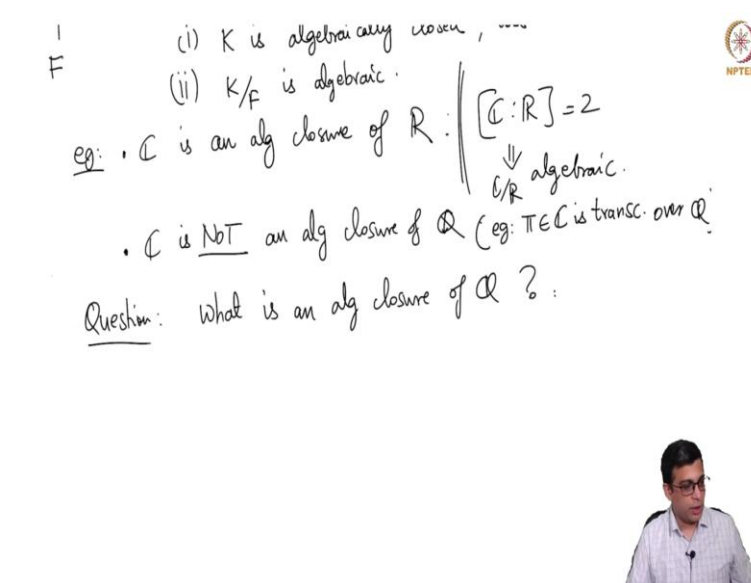 (i) K is algebraically closed,
F
(ii) K/F is algebraic.
eg: . ℂ is an alg closure of R : [ℂ:R] = 2
⇓
ℂ/R algebraic.
. ℂ is NOT an alg closure of Q (eg: π∈ℂ is transc. over Q
Question: What is an alg closure of Q ?
NPTEL